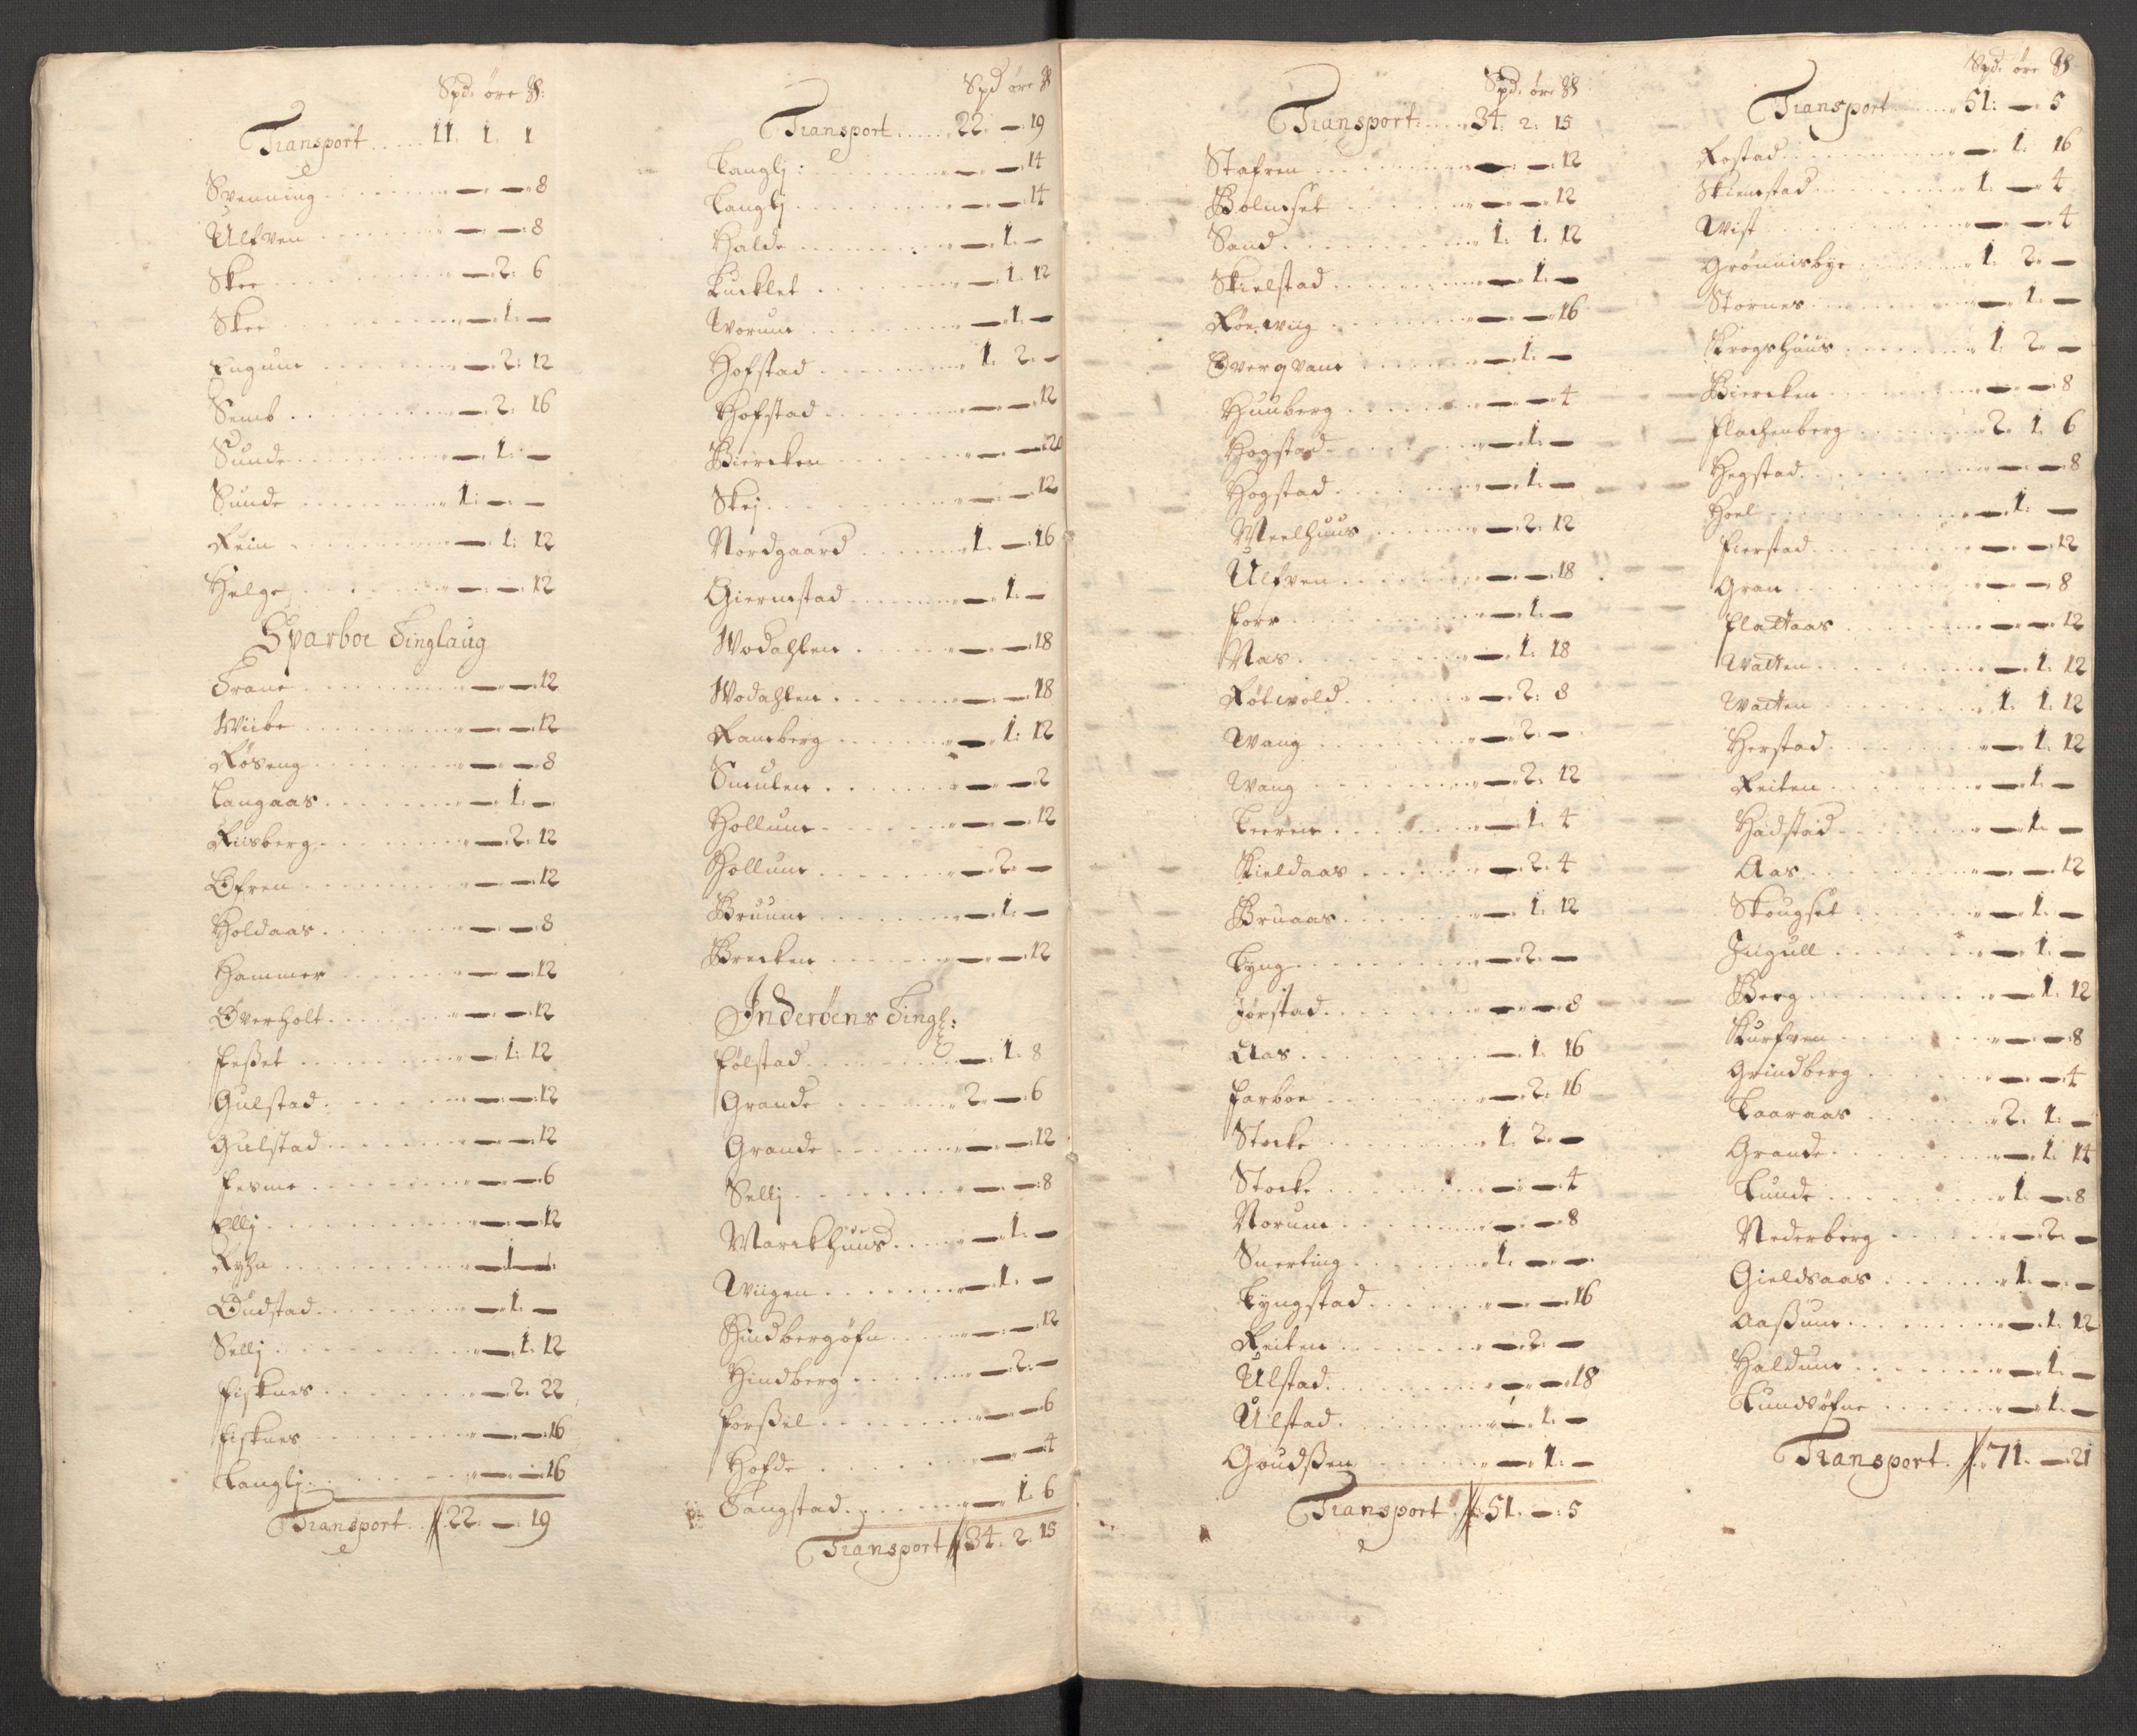 Spd. øre ₰:
Transport ..... 11. 1. 1
Svenning ........ — — 8
Ulfven ........ — — 8
Skee ........ — 2. 6
Skee ........ — 1. —
Engum ........ — 2. 12
Semb ........ — 2. 16
Sunde ........ — 1. —
Sunde ........ 1. — —
Rein ........ — 1. 12
Helge ........ — — 12
Sparboe Tinglaug
Trane ........ — — 12
Wiibe ........ — — 12
Røseng ........ — — 8
Langaas ........ — 1. —
Riisberg ........ — 2. 12
Øfren ........ — — 12
Holdaas ........ — — 8
Hammer ........ — — 12
Øverholt ........ — — 12
Leßet ........ — 1. 12
Gulstad ........ — — 12
Gulstad ........ — — 12
Lesme ........ — — 6
Ellj ........ — — 12
Ryhn ........ — 1 —
Oudstad ........ — 1. —
Sellj ........ — 1. 12
Fisknes ........ — 2. 22
Fisknes ........ — — 16
Langlj ........ — — 16
Transport .. 22. — 19
Spd øre ₰
Transport ..... 22. — 19
Langlj: ........ — — 14
Langlj ........ — — 14
Halde ........ — 1. —
Lucklet ........ — 1. 12
Worum ........ — 1. —
Hofstad ........ 1. 2. —
Hofstad ........ — — 12
Biercken ........ — — 20
Skej ........ — — 12
Nordgaard ........ 1. — 16
Giermstad ........ — 1. —
Wodahlen ........ — — 18
Wodahlen ........ — — 18
Ramberg ........ — 1. 12
Smulen ........ — — 2
Hollum ........ — — 12
Hollum ........ — 2. —
Bruum ........ — 1. —
Brecken ........ — — 12
Inderøens Tingl:
Følstad ........ — 1. 8
Grande ........ 2. — 6
Grande ........ — — 12
Sellj ........ — — 8
Marckhuus ........ — 1. —
Wiigen ........ — 1. —
Hindbergøfn ........ — — 12
Hindberg ........ — 2. —
Forßel ........ — — 6
Hofde ........ — — 4
Tangstad ........ — 1. 6
Transport 34. 2. 15
Spd. øre ₰
Transport: .... 34. 2. 15
Stafren ........ — — 12
Bolmset ........ — — 12
Sand ........ 1. 1. 12
Skielstad ........ — 1. —
Røewiig ........ — — 16
Overqvam ........ — 1. —
Huuberg ........ — — 4
Hogstad ........ — 1. —
Hogstad ........ — 1. —
Meelhuus ........ — 2. 12
Ulfven ........ — — 18
Forr ........ — 1. —
Nas ........ — 1. 18
Røtwold ........ — 2. 8
Wang ........ — 2. —
Wang ........ — 2. 12
Leeren ........ — 1. 4
Kieldaas ........ — 2. 4
Bruaas ........ — 1. 12
Lyng ........ — 2. —
Jørstad ........ — — 8
Aas ........ — 1. 16
Farboe ........ — 2. 16
Stocke ........ 1. 2. —
Stocke ........ — — 4
Norum ........ — — 8
Snerting ........ 1. — —
Lyngstad ........ — — 16
Reiten ........ — 2. —
Ulstad ........ — — 18
Ulstad ........ — 1. —
Goudßen ........ — 1. —
Transport .. 51. — 5
Spd. øre ₰
Transport ..... 51. — 5
Rostad ........ — 1. 16
Skiemstad ........ 1. — 4
Wist ........ — — 4
Grønnisbye ........ 1. 2. —
Stornes ........ — 1. —
Krogshuus ........ 1. 2. —
Biercken ........ — — 8
Flachenberg ........ 2. 1. 6
Hegstad ........ — — 8
Hoel ........ — 1. —
Fierstad ........ — — 12
Gran ........ — — 8
Flattaas ........ — — 12
Watten ........ — 1. 12
Watten ........ 1. 1. 12
Herstad ........ — 1. 12
Reiten ........ — 1. —
Hadstad ........ — 1. —
Aas ........ — — 12
Skougset ........ — 1. —
Ingull ........ — 1. —
Berg ........ — 1. 12
Kurfven ........ — — 8
Grindberg ........ — — 4
Laaraas ........ 2. 1. —
Grande ........ — 1. 14
Lunde ........ 1. — 8
Nederberg ........ — 2. —
Gieldsaas ........ 1. — —
Aaßum ........ — 1. 12
Haldum ........ — 1. —
Lundsøfne ........ — 1. —
Transport. 71. — 21